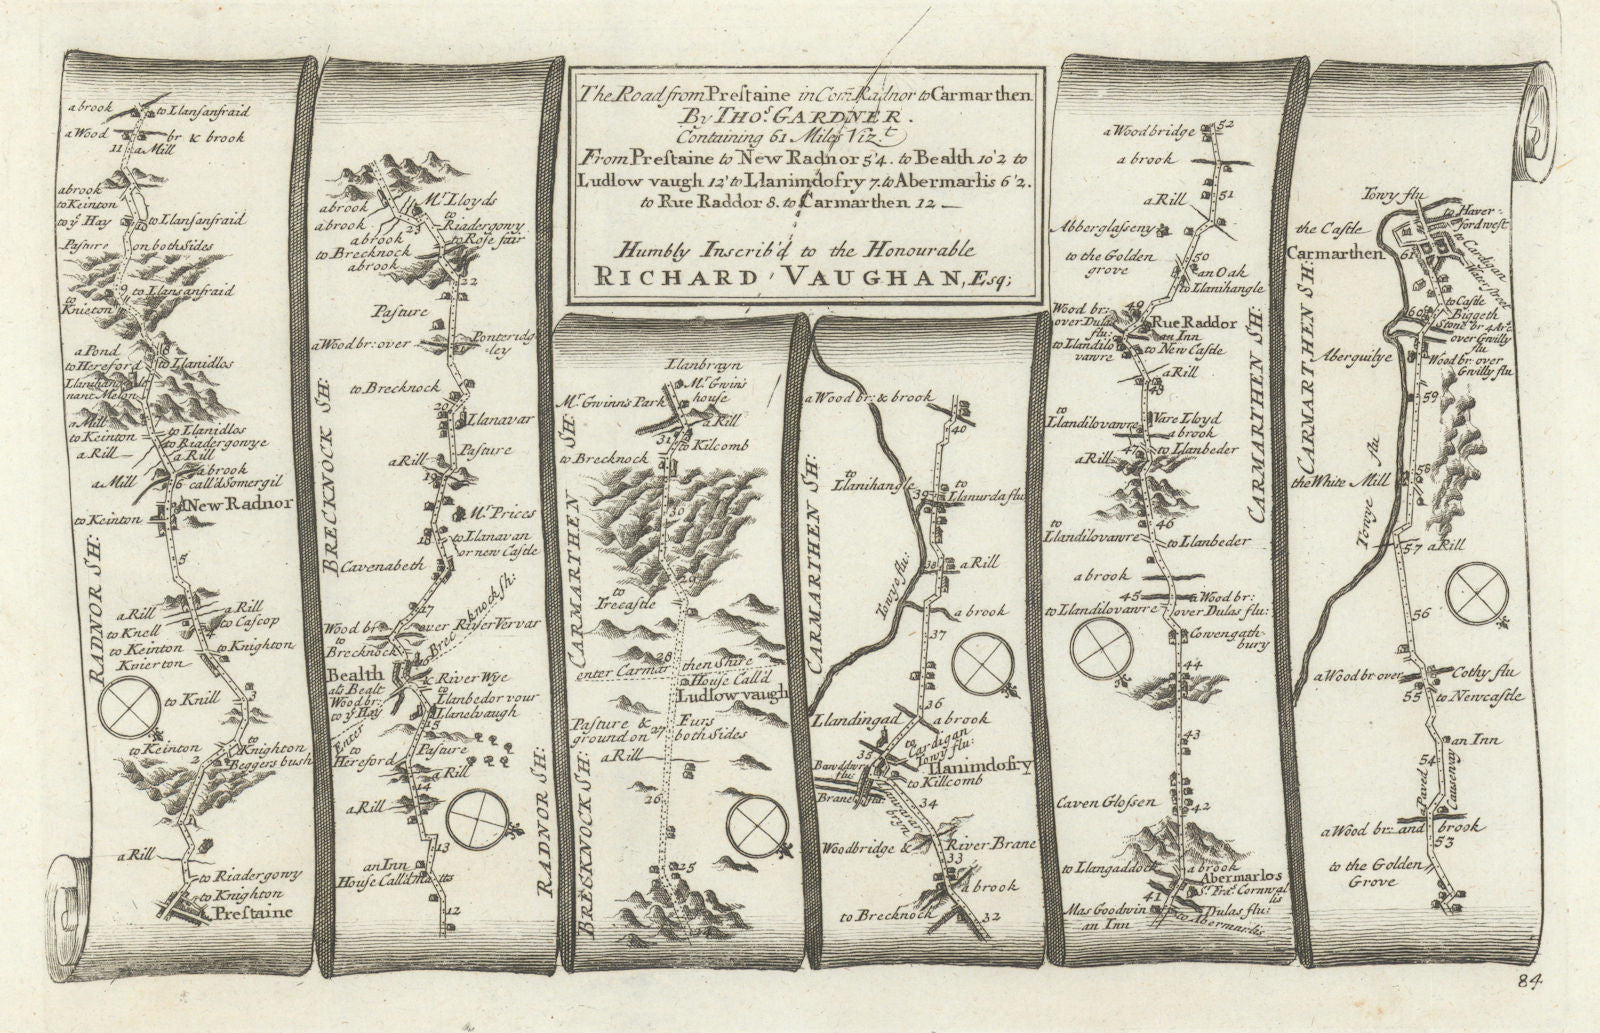 The Road from Prestaine in Com. Radnor to Carmarthen
By THOs. GARDNER.
Containing 61 Miles Vizt.
From Prestaine to New Radnor 5'4. to Bealth 10'2 to
Ludlow vaugh 12' to Llanimdofry 7. to Abermarlis 6'2.
to Rue Raddor 8. to Carmarthen 12
Humbly Inscrib'd to the Honourable
RICHARD VAUGHAN, Esq;
a brook
to Llansanfraid
a Wood br & brook
11
a Mill
abrook
to Keinton
to ye Hay
10
to Llansanfraid
Pasture on both Sides
9
to Llansanfraid
to
Knieton
8
a Pond
to Hereford
to Llanidlos
Llanihang
nant Melon
7
a Mill
to Keinton
to Llanidlos
to Riadergowye
a Rill
a Rill
a brook
call'd Somergil
a Mill
6
New Radnor
to Keinton
RADNOR SH:
5
a Rill
a Rill
to Cascop
to Knell
4
to Keinton
to Knighton
Knierton
3
to Knill
to Keinton
to
Knighton
2
Beggers bush
1
a Rill
to Riadergowy
to Knighton
Prestaine
Mr. Lloyds
abrook
to
Riadergowy
abrook
23
to Rose fair
abrook
to Brecknock
abrook
22
Pasture
Ponteridg-
ley
a Wood br: over
21
to Brecknock
20
Llanavar
BRECKNOCK SH:
Pasture
a Rill
19
Mr. Prices
18
to Llanavan
or new Castle
Cavenabeth
17
Wood br:
over River Vervas
to
Brecknock
Brecknock sh:
16
Bealth
als Bealt
& River Wye
Wood br:
to ye Hay
to
Llanbedor vour
Llanelvaugh
15
Enter
to
Hereford
Pasture
a Rill
14
a Rill
13
an Inn
House Call'd Matts
12
RADNOR SH:
Llanbrayn
Mr. Gwin's
house
Mr. Gwinn's Park
a Rill
31
to Kilcomb
to Brecknock
30
CARMARTHEN SH:
29
to
Trecastle
28
enter Carmarthen Shire
to House Call'd
Ludlow vaugh
Pasture & Furs
ground on both Sides
27
a Rill
26
25
24
BRECKNOCK SH:
a Wood br: & brook
40
to
Llanihangle
39
to
Llanurda flu
CARMARTHEN SH:
38
a Rill
Towy flu:
a brook
37
36
Llandingad
a brook
to
Cardigan
Towy flu:
35
Llanimdofry
to Killcomb
Brane flu:
34
Woodbridge & River Brane
33
a brook
to Brecknock
32
52
a Woodbridge
a brook
51
a Rill
Abberglasseny
50
to the Golden
grove
an Oak
to Llanihangle
49
Wood br:
over Dulas
flu:
Rue Raddor
an Inn
to Llandilo
vawre
to New Castle
a Rill
48
to
Llandilovawre
Vare Lloyd
a brook
47
to Llanbeder
a Rill
CARMARTHEN SH:
46
to
Llandilovawre
to Llanbeder
a brook
45
a Wood br:
over Dulas flu:
to Llandilovawre
Cowengath-
bury
44
43
Caven Glossen
42
to Llangaddock
a brook
Abermarlos
Sr. Fra: Cornwal
lis
41
Mas Goodwin
an Inn
Dulas flu:
to Abermarlis
Towy flu
to Haver-
fordwest
the Castle
to Cardigan
Carmarthen
61
Water street
to Castle
Biggeth
60
Stone br 4 Ar:
over Gwilly
flu
Aberguilye
Wood br: over
Gwilly flu
59
CARMARTHEN SH:
58
the White Mill
Towye flu
57
a Rill
56
a Wood br over
Cothy flu
55
to Newcastle
an Inn
54
Paved
Causeway
a Wood br: and brook
53
to the Golden
Grove
84